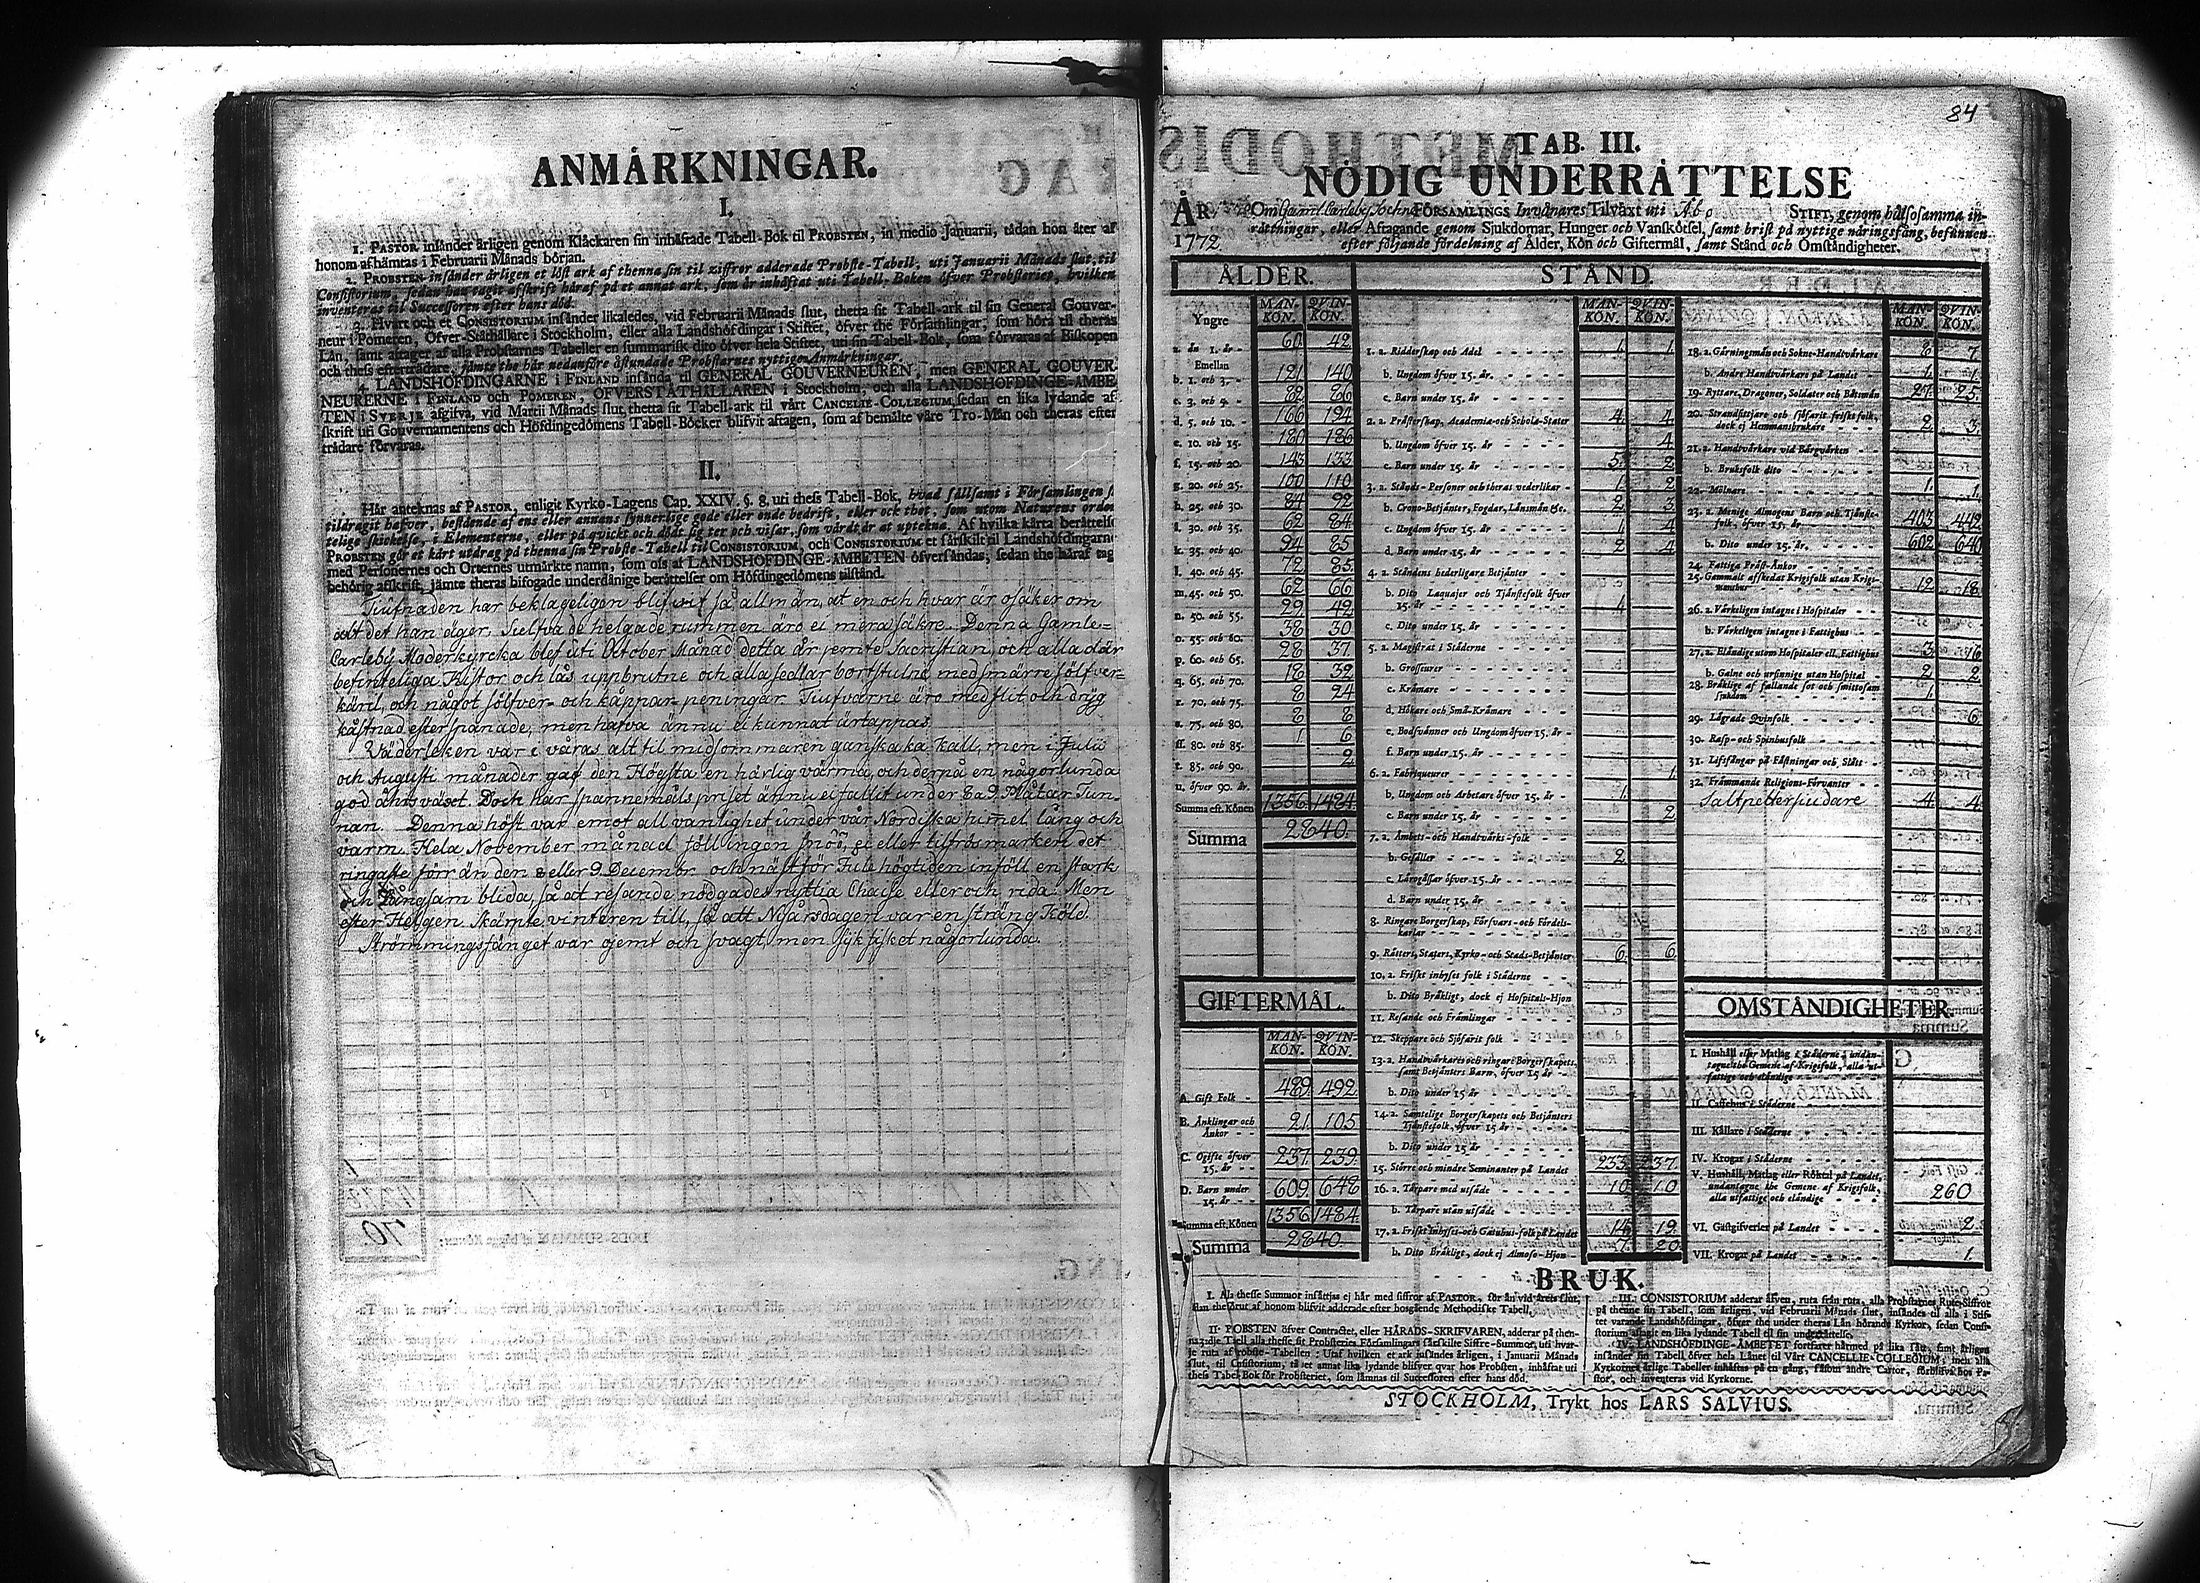 ANMÄRKNINGAR.
I.
1. PASTOR insänder årligen genom Klåckaren sin inhäftade Tabell-Bok til PROBSTEN, in medio Januarii, sådan hon åter af
honom afhämtas i Februarii Månads början.
2. PROBSTEN insänder årligen et löst ark af thenna sin til ziffror adderade Probste-Tabell, uti Januarii Månads slut, til
Consistorium, sedan han tagit afskrift häraf på et annat ark, som är inhäftat uti Tabell-Boken öfver Probsteriet, hvilken
inventeras til Successoren efter hans död.
3. Hvart och et CONSISTORIUM insänder likaledes, vid Februarii Månads slut, thetta sit Tabell-ark til sin General Gouver-
neur i Pomeren, Öfver-Ståthållare i Stockholm, eller alla Landshöfdingar i Stiftet, öfver the Församlingar, som höra til theras
Län, samt aftager af alla Probstarnes Tabeller en summarisk dito öfver hela Stiftet, uti sin Tabell-Bok, som förvaras af Biskopen
och thess efterträdare, jämte the här nedanföre åstundade Probstarnes nyttige Anmärkningar.
4. LANDSHÖFDINGARNE i FINLAND insända til GENERAL GOUVERNEUREN, men GENERAL GOUVER-
NEURERNE i FINLAND och POMEREN, ÖFVERSTÅTHÅLLAREN i Stockholm, och alla LANDSHÖFDINGE-ÄMBE-
TEN i SVERJE afgifva, vid Martii Månads slut, thetta sit Tabell-ark til vårt CANCELIE-COLLEGIUM, sedan en lika lydande af-
skrift uti Gouvernamentens och Höfdingedömens Tabell-Böcker blifvit aftagen, som af bemälte våre Tro-Män och theras efter
trädare förvaras.
II.
Här anteknas af PASTOR, enligit Kyrko-Lagens Cap. XXIV. 6. 8. uti thess Tabell-Bok, hvad sällsamt i Församlingen
tildragit hafver, bestående af ens eller annans synnerlige gode eller onde bedrift, eller ock thet, som utom Naturens orden
telige skickelse, i Elementerne, eller på qvickt och dödt sig ter och visar, som värdt är at uptekna. Af hvilka kärta berättelse
PROBSTEN gör et kårt utdrag på thenna sin Probste-Tabell til CONSISTORIUM, och CONSISTORIUM et särskilt til Landshöfdingarne
med Personernes och Orternes utmärkte namn, som ofs af LANDSHÖFDINGE-ÄMBETEN öfversändas, sedan the häraf tag
behörig afskrift, jämte theras bifogade underdånige berättelser om Höfdingedömens tilstånd.
Tiufnaden har beklageligen blifvit så allmän, at en och hvar är osäker om
alt det han äger. Sielfva de helgade rummen äro ei mera säkre. Denna Gamle-
Carleby Moderkyrcka blef uti October Månad detta år jemte Sacristian, och alla där
befinteliga Kistor och lås uppbrutne och alla sedlar bortstulne med smärre sölfver-
käril, och något sölfver- och kåppar-peningar. Tiufvarne äro med flit och dryg
kåstnad efterspanade, men hafva ännu ei kunnat ärtappas.
Väderleken var i våras alt til midsommaren ganska kall, men i Julii
och Augusti månader gaf den Högsta en härlig värma, och derpå en någorlunda
god åhrsväxt. Doch har spannemåls priset ännu ei fallit under 8 a 9 Plåtar Tun-
nan. Denna höst var emot all vanlighet under vår Nordiska himel lång och
varm. Hela November månad föll ingen snö, ei eller tilfrös marken det
ringaste förr än den 8 eller 9 Decembr. och näst för Jule högtiden inföll en stark
och långsam blida, så at resande nödgades nyttia Chaise eller och rida. Men
efter Helgen skärpte vinteren till, så att Nyårsdagen var en sträng Köld.
Strömmingsfånget var ojemt och svagt, men sijk fisket någorlunda.
84
TAB. III.
NÖDIG UNDERRÄTTELSE
ÅR 1772 Om Gamle Carleby Sochne FÖRSAMLINGS Invånares Tilväxt uti Åbo STIFT, genom hälsosamma in-
rättningar, eller Aftagande genom Sjukdomar, Hunger och Vanskötsel, samt brist på nyttige näringsfång, befunnen
efter följande fördelning af Ålder, Kön och Giftermål, samt Stånd och Omständigheter.
ÅLDER.
MAN-KÖN. QVIN-KÖN.
Yngre
a. än 1. år 60 42
Emellan
b. 1. och 3. 121 140
c. 3. och 5. 82 86
d. 5. och 10. 166 194
e. 10. och 15. 180 186
f. 15. och 20. 143 133
g. 20. och 25. 100 110
h. 25. och 30. 84 92
i. 30. och 35. 62 84
k. 35. och 40. 94 85
l. 40. och 45. 72 85
m. 45. och 50. 62 66
n. 50. och 55. 29 42
o. 55. och 60. 38 30
p. 60. och 65. 28 37
q. 65. och 70. 18 32
r. 70. och 75. 8 24
s. 75. och 80. 8 8
ss. 80. och 85. 1 6
t. 85. och 90. 2
u. öfver 90. år
Summa eft. Könen 1356 1484
Summa 2840
GIFTERMÅL.
MAN-KÖN. QVIN-KÖN.
A. Gift Folk 489 492
B. Änklingar och Änkor 21 105
C. Ogifte öfver 15. år 237 239
D. Barn under 15. år 609 648
Summa eft. Könen 1356 1484
Summa 2840
STÅND.
MAN-KÖN. QVIN-KÖN.
1. a. Ridderskap och Adel 1 1
b. Ungdom öfver 15. år.
c. Barn under 15. år
2. a. Prästerskap, Academia-och Schola-Stater 4 4
b. Ungdom öfver 15. år 4
c. Barn under 15. år 5 2
3. a. Stånds-Personer och theras vederlikar 1 2
b. Crono-Betjänter, Fogdar, Länsmän &c. 2 3
c. Ungdom öfver 15. år 1 4
d. Barn under 15. år 2 4
4. a. Ståndens hederligare Betjänter
b. Dito Laquajer och Tjänstefolk öfver 15. år 1
c. Dito under 15. år
5. a. Magistrat i Städerne
b. Grosseurer
c. Krämare
d. Hökare och Små-Krämare
e. Bodsvänner och Ungdom öfver 15. år
f. Barn under 15. år
6. a. Fabriqueurer 1
b. Ungdom och Arbetare öfver 15. år 1
c. Barn under 15. år 2
7. a. Ämbets-och Handtvärks-folk
b. Gesäller 2
c. Lärogåssar öfver 15. år
d. Barn under 15. år
8. Ringare Borgerskap, Försvars-och Fördels-karlar
9. Rätters, Staters, Kyrko-och Stads-Betjänter 6 6
10. a. Friskt inhyses folk i Städerne
b. Dito Bräkligt, dock ej Hospitals-Hjon
11. Resande och Främlingar
12. Skeppare och Sjöfarit folk
13. a. Handtvärkares och ringare Borgerskapets, samt Betjänters Barn, öfver 15 år
b. Dito under 15 år
14. a. Samtelige Borgerskapets och Betjänters Tjänstefolk, öfver 15 år
b. Dito under 15 år
15. Större och mindre Seminanter på Landet 233 237
16. a. Tårpare med utsäde 10 10
b. Tårpare utan utsäde
17. a. Friskt Inhyses-och Gatuhus-folk på Landet 14 19
b. Dito Bräkligt, dock ej Almoso-Hjon 7 20
MAN-KÖN. QVIN-KÖN.
18. a. Gärningsmän och Sokne-Handtvärkare 8 7
b. Andre Handtvärkare på Landet 1 1
19. Ryttare, Dragoner, Soldater och Båtsmän 27 25
20. Strandsittjare och sjöfarit friskt folk, dock ej Hemmansbrukare 2 3
21. a. Handtvärkare vid Bärgvärken
b. Bruksfolk dito
22. Mölnare 1 1
23. a. Menige Almogens Barn och Tjänste-folk, öfver 15. år 403 442
b. Dito under 15. år. 602 640
24. Fattiga Präst-Änkor
25. Gammalt affkedat Krigsfolk utan Krigs-mundur 12 18
26. a. Värkeligen intagne i Hospitaler
b. Värkeligen intagne i Fattighus
27. a. Eländige utom Hospitaler ell. Fattighus 3 16
b. Galne och ursinnige utan Hospital 2 2
28. Bräklige af fallande sot och smittosam sjukdom 1
29. Lägrade Qvinfolk 6
30. Rasp-och Spinhusfolk
31. Lifsfångar på Fästningar och Slått
32. Främmande Religions-Förvanter
Saltpettersiudare 4 4
OMSTÄNDIGHETER
I. Hushåll eller Matlag i Städerne, undan-tagne the Gemene af Krigsfolk, alla ut-fattige och eländige
II. Caffehus i Städerne
III. Källare i Städerne
IV. Krogar i Städerne
V. Hushåll, Matlag eller Röktal på Landet, undantagne the Gemene af Krigsfolk, alla utfattige och eländige 260
VI. Gästgifverier på Landet 2
VII. Krogar på Landet 1
BRUK.
I. Ala thesse Summor insättjas ej här med siffror af PASTOR, för än vid årets slut,
sedan the förut af honom blifvit adderade efter hosgående Methodiske Tabell.
II. PROBSTEN öfver Contractet, eller HÄRADS-SKRIFVAREN, adderar på then-
theſs Tabell-Bok för Probsteriet, som lämnas til Successoren efter hans död.
III. CONSISTORIUM adderar äfven, ruta från ruta, alla Probstarnes Rute-Siffror
på thenne sin Tabell, som årligen, vid Februarii Månads slut, insändes til alla i Stif-
tet varande Landshöfdingar, öfver the under theras Län hörande Kyrkor, sedan Consi-
storium aftagit en lika lydande Tabell til sin underrättelse.
IV. LANDSHÖFDINGE-ÄMBETET fortfarer härmed på lika sätt, samt årligen
insänder sin Tabell öfver hela Länet til Vårt CANCELLIE-COLLEGIUM; men alla
Kyrkornes årlige Tabeller inhäftas på en gång, såsom andre Cartor, förblifva hos Pa-
stor, och inventeras vid Kyrkorne.
STOCKHOLM, Trykt hos LARS SALVIUS.